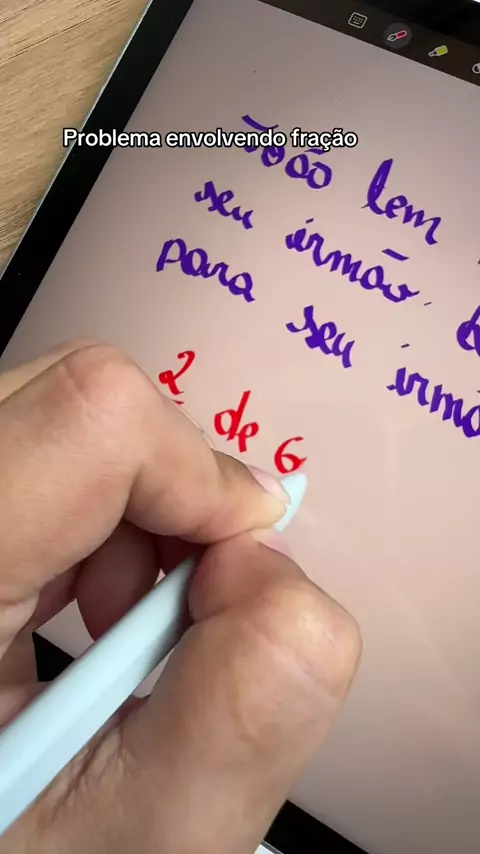 Problema envolvendo fração
João tem
seu irmão.
para seu irmão
2 de 6